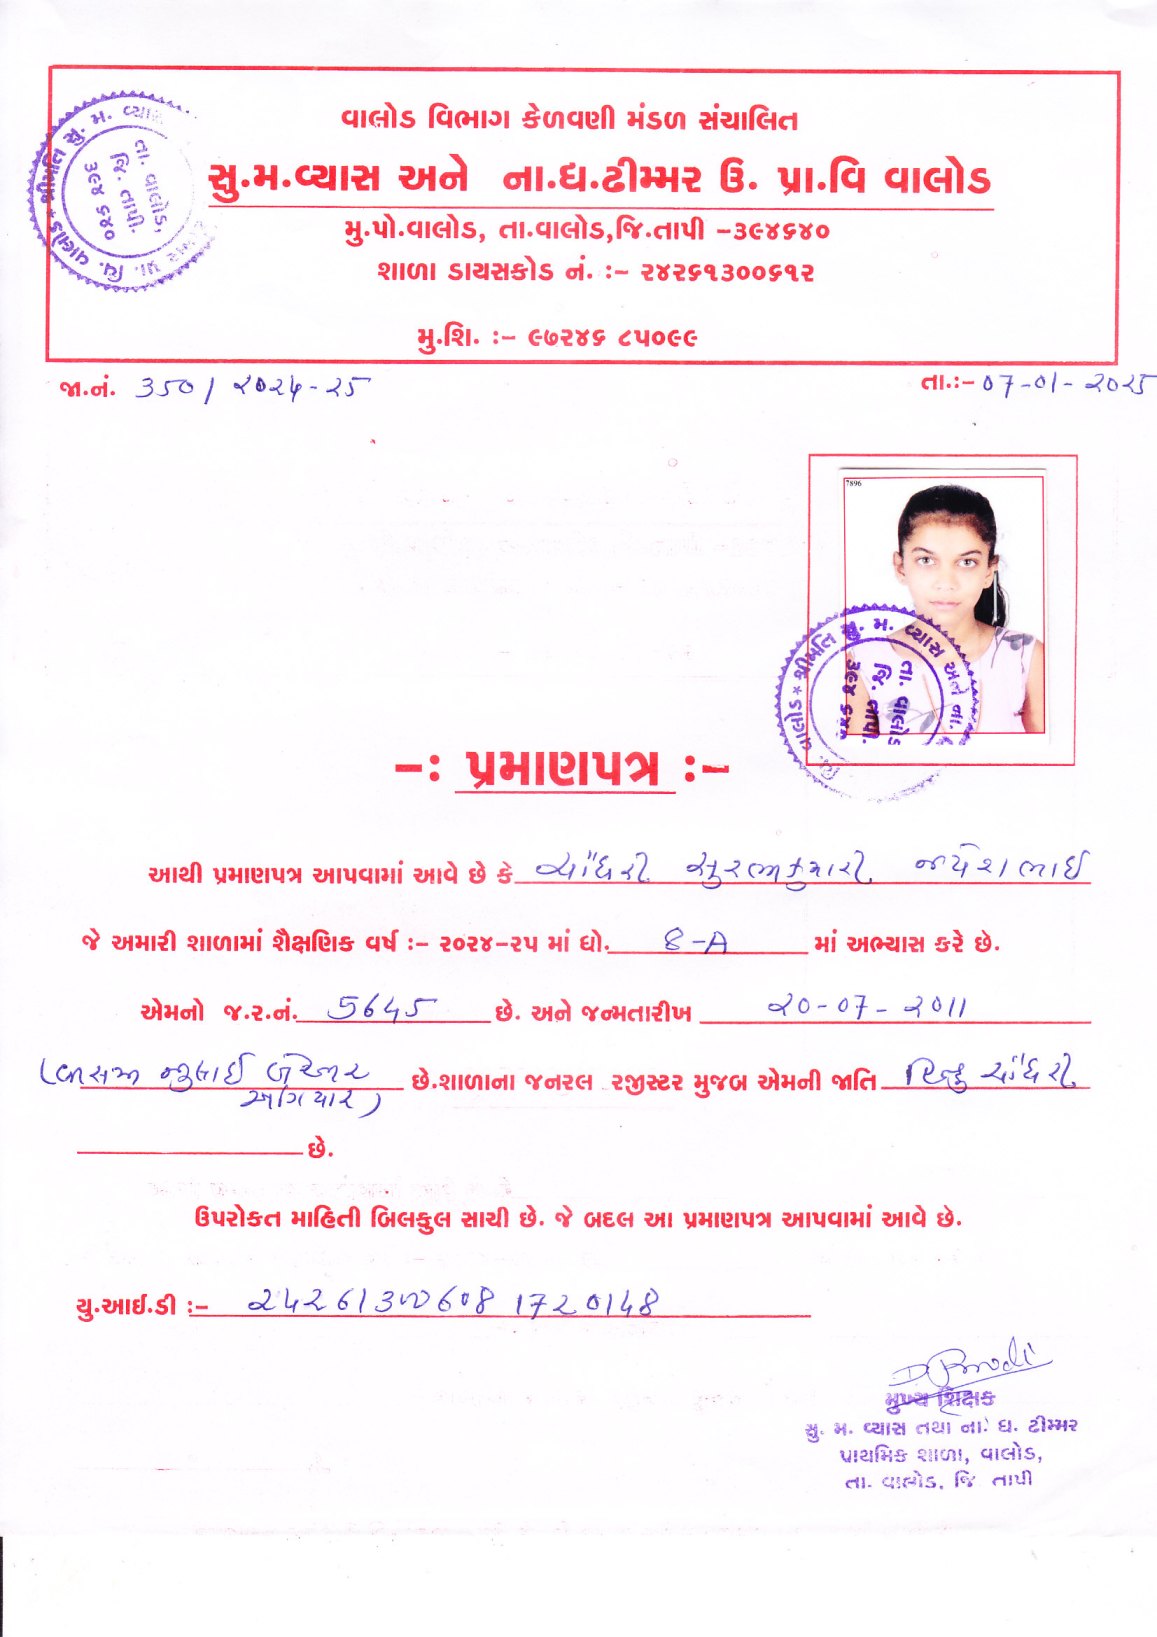 વાલોડ વિભાગ કેળવણી મંડળ સંચાલિત
સુ.મ.વ્યાસ અને ના.ધ.ઢીમ્મર ઉ. પ્રા.વિ વાલોડ
મુ.પો.વાલોડ, તા.વાલોડ,જિ.તાપી -૩૯૪૬૪૦
શાળા ડાયસકોડ નં. :- ૨૪૨૬૧૩૦૦૬૧૨
મુ.શિ. :- ૯૭૨૪૬ ૮૫૦૯૯
શ્રીમતિ સુ. મ. વ્યાસ
પ્રા. વિ. વાલોડ
તા. વાલોડ,
જિ. તાપી.
૩૯૪ ૬૪૦
જા.નં. 350 / ૨0૨4-25
તા.:- 07-01-2025
7896
શ્રીમતિ સુ. મ. વ્યાસ અને ના.
વિ. વાલોડ
તા. વાલોડ
જિ. તાપી.
૩૯૪ ૬૪૦
-: પ્રમાણપત્ર :-
આથી પ્રમાણપત્ર આપવામાં આવે છે કે ચૌધરી સુરભીકુમારી જયેશભાઈ
જે અમારી શાળામાં શૈક્ષણિક વર્ષ :- ૨૦૨૪-૨૫ માં ધો. 8-A માં અભ્યાસ કરે છે.
એમનો જ.ર.નં. 5645 છે. અને જન્મતારીખ ૨0-07-2011
(વીસમી જુલાઈ બે હજાર છે.શાળાના જનરલ રજીસ્ટર મુજબ એમની જાતિ હિન્દુ ચૌધરી
અગિયાર)
છે.
ઉપરોક્ત માહિતી બિલકુલ સાચી છે. જે બદલ આ પ્રમાણપત્ર આપવામાં આવે છે.
યુ.આઈ.ડી :- 242613006081720148
મુખ્ય શિક્ષક
સુ. મ. વ્યાસ તથા ના. ધ. ઢીમ્મર
પ્રાથમિક શાળા, વાલોડ,
તા. વાલોડ, જિ તાપી